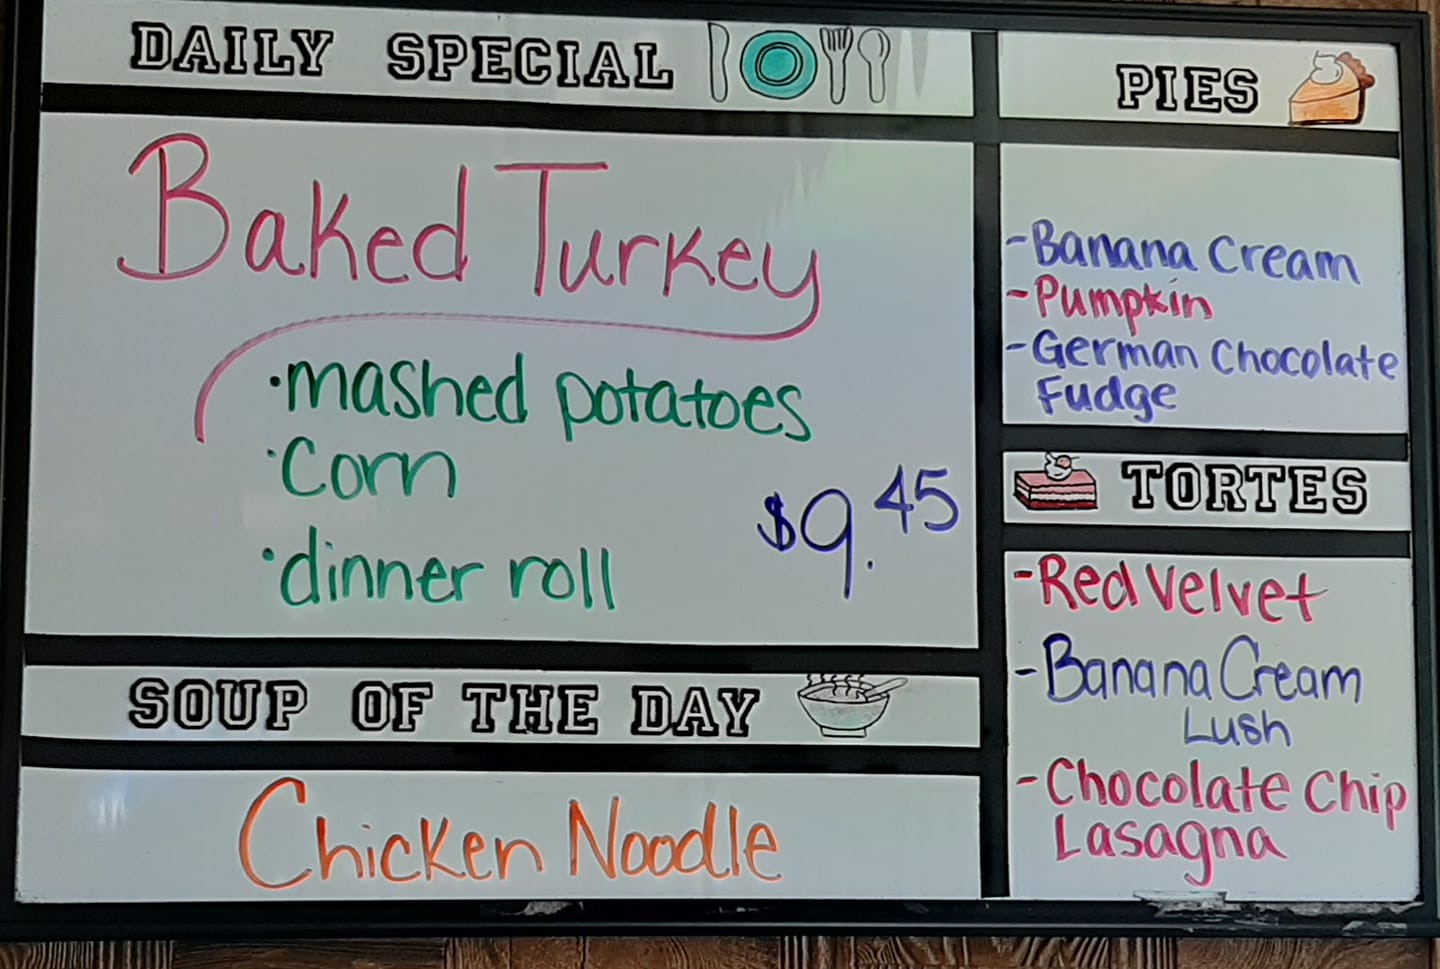 DAILY SPECIAL
Baked Turkey
·mashed potatoes
·Corn
·dinner roll
$9.45
SOUP OF THE DAY
Chicken Noodle
PIES
-Banana Cream
-Pumpkin
-German Chocolate
Fudge
TORTES
-Red Velvet
-Banana Cream
Lush
-Chocolate Chip
Lasagna